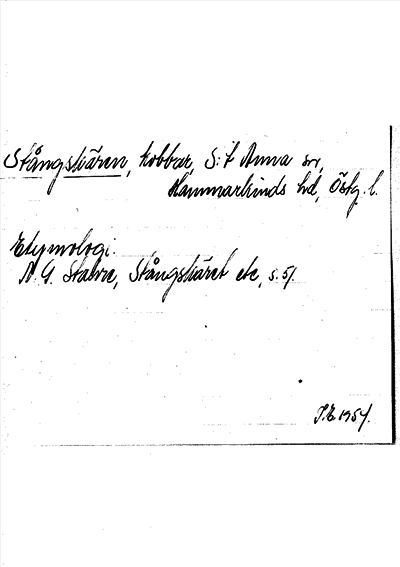 Stångskären, kobbar, S:t Anna sn,
Hammarkinds hd, Östg. l.
Etymologi.
N. G. Stahre, Stångskäret etc, s. 51.
1954.